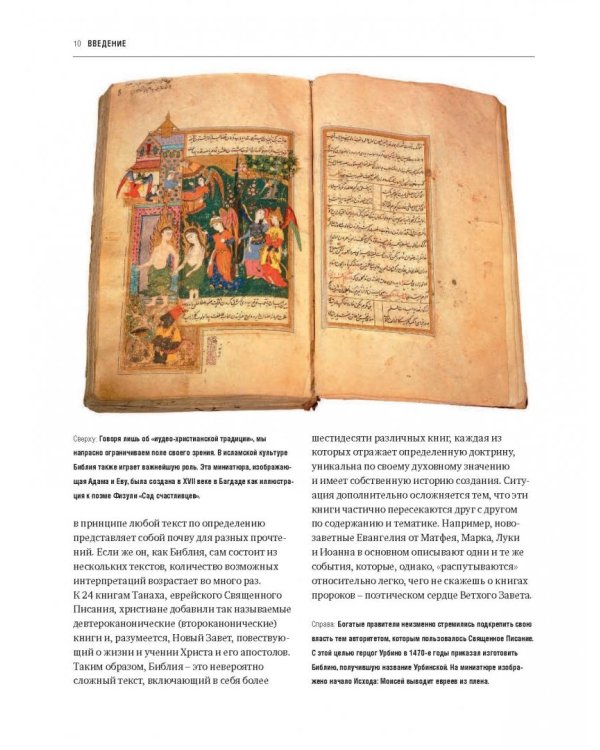 10 ВВЕДЕНИЕ
Сверху: Говоря лишь об «иудео-христианской традиции», мы
напрасно ограничиваем поле своего зрения. В исламской культуре
Библия также играет важнейшую роль. Эта миниатюра, изображаю-
щая Адама и Еву, была создана в XVII веке в Багдаде как иллюстра-
ция к поэме Физули «Сад счастливцев».
в принципе любой текст по определению
представляет собой почву для разных прочте-
ний. Если же он, как Библия, сам состоит из
нескольких текстов, количество возможных
интерпретаций возрастает во много раз.
К 24 книгам Танаха, еврейского Священного
Писания, христиане добавили так называемые
девтероканонические (второканонические)
книги и, разумеется, Новый Завет, повествую-
щий о жизни и учении Христа и его апостолов.
Таким образом, Библия – это невероятно
сложный текст, включающий в себя более
шестидесяти различных книг, каждая из
которых отражает определенную доктрину,
уникальна по своему духовному значению
и имеет собственную историю создания. Ситу-
ация дополнительно осложняется тем, что эти
книги частично пересекаются друг с другом
по содержанию и тематике. Например, ново-
заветные Евангелия от Матфея, Марка, Луки
и Иоанна в основном описывают одни и те же
события, которые, однако, «распутываются»
относительно легко, чего не скажешь о книгах
пророков – поэтическом сердце Ветхого Завета.
Справа: Богатые правители неизменно стремились подкрепить свою
власть тем авторитетом, которым пользовалось Священное Писание.
С этой целью герцог Урбино в 1470-е годы приказал изготовить
Библию, получившую название Урбинской. На миниатюре изобра-
жено начало Исхода: Моисей выводит евреев из плена.